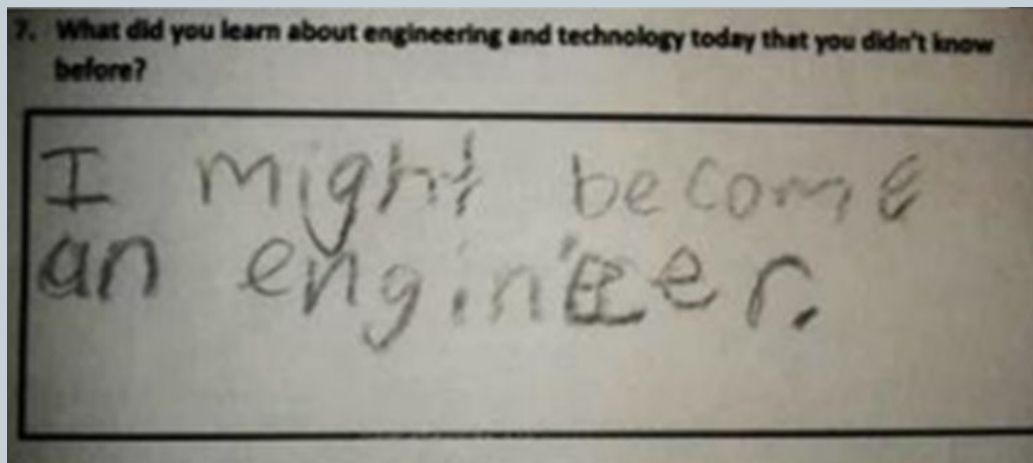 7. What did you learn about engineering and technology today that you didn't know
before?
I might become
an engineer.